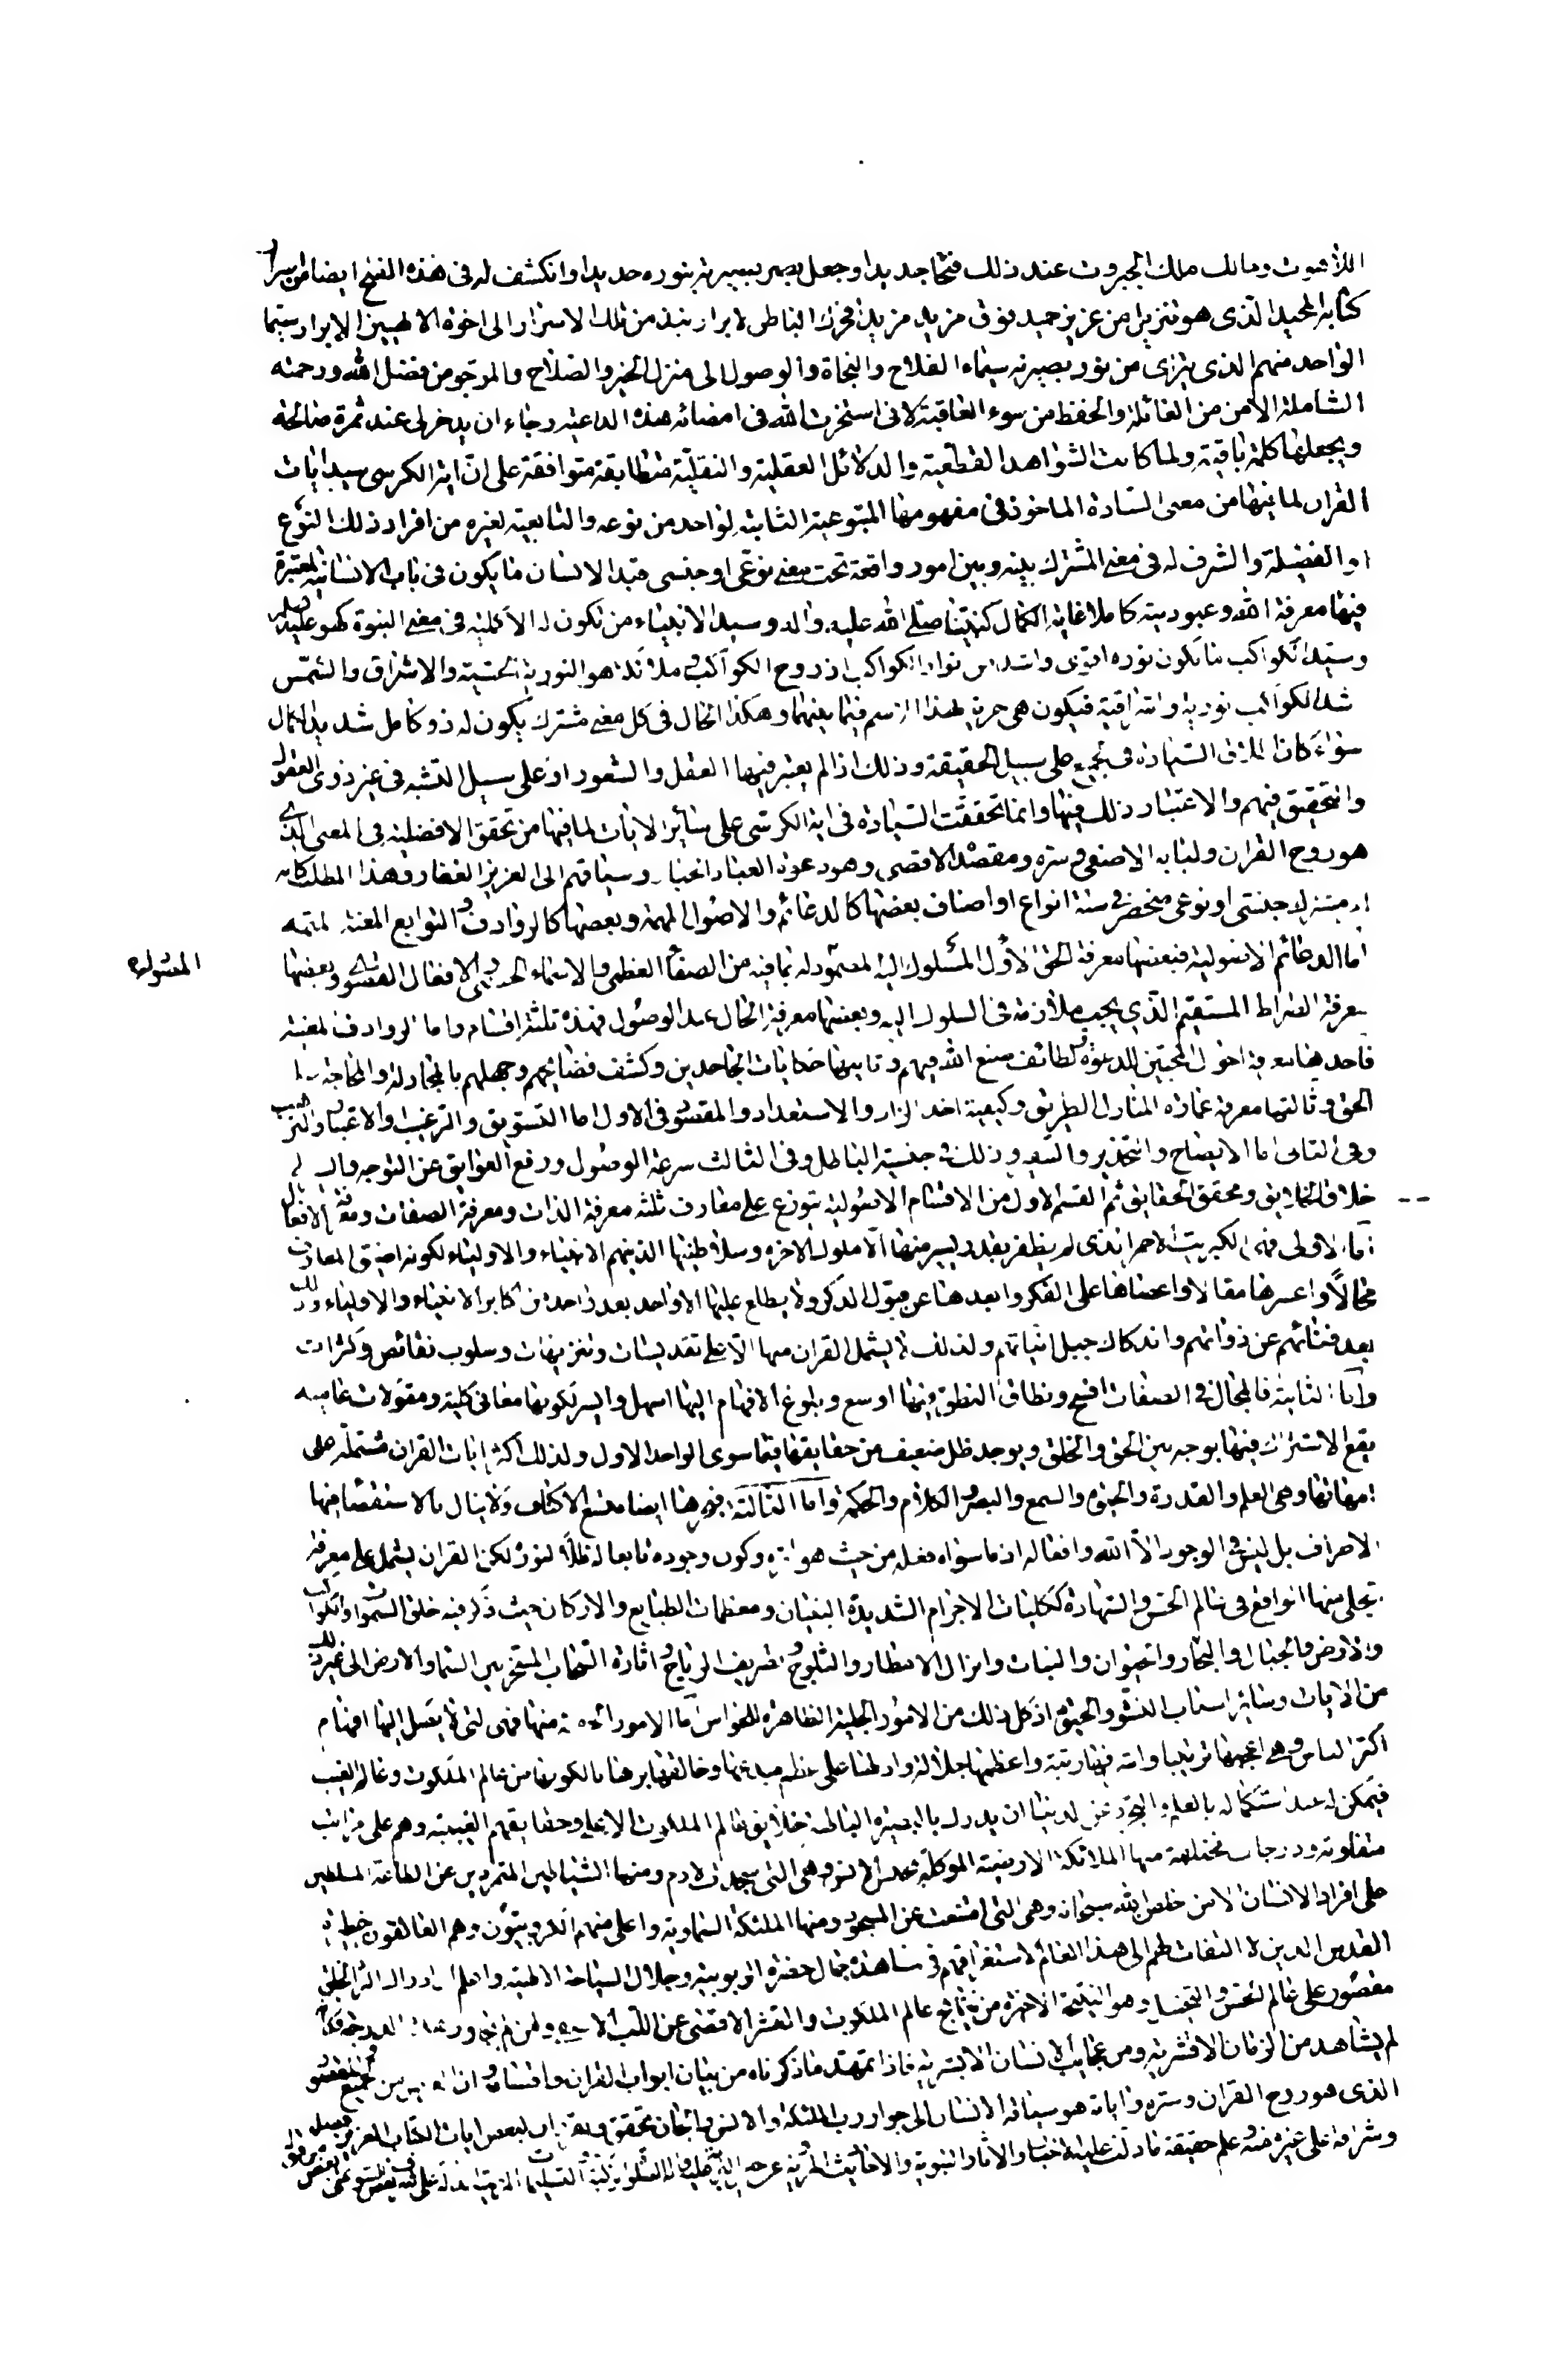 اللاهوت ومالك ملك الجبروت عند ذلك فتحا جديدا وجعل بصر بصيرته بنوره حديدا وانكشف له في هذه الفتح ايضا من اسرار
كتابه المجيد الذي هو تنزيل من عزيز حميد فوق مزيد مزيدا فحرك الباطن لابراز نبذ من تلك الاسرار الى اخوة الالهيين الابرار سيما
الواحد منهم الذي يترأى من نور بصيرته سيماء الفلاح والنجاة والوصول الى منزل الخير والصلاح والمرجو من فضل الله ورحمته
الشاملة الامن من الغائلة والحفظ من سوء العاقبة لانى استخرت الله في امضائه هذه الداعية رجاء ان يدخر لى عنده ثمرة صالحة
ويجعلها كلمة باقية ولما كانت الشواهد القطعية والدلائل العقلية والنقلية متطابقة متوافقة على ان اية الكرسي سيد ايات
القران لما فيها من معنى السيادة الماخوذ في مفهومها المتبوعية الثابتة لواحد من نوعه والتابعية لغيره من افراد ذلك النوع
او الفضيلة والشرف له في معنى المشترك بينه وبين امور واقعة تحت معنى نوعى او جنسى فسيد الانسان ما يكون في باب الانسانية المعتبرة
فيها معرفة الله وعبوديته كاملا غاية الكمال كنبينا صلى الله عليه واله وسيد الانبياء من تكون له الاكملية في معنى النبوة كهو عليه
وسيد الكواكب ما يكون نوره اقوى واشد من نور الكواكب اذ روح الكواكب وملاكه هو النورية الحسية والاشراق والشمس
اشد الكواكب نورية واشراقية فيكون هي حرية لهذا الاسم فيما بينها وهكذا الحال في كل معنى مشترك يكون له ذو كامل شديد الكمال
سواء كان اطلاق السيادة في الجميع على سبيل الحقيقة وذلك اذا لم يعتبر فيها العقل والشعور او على سبيل التشبه في غير ذوى العقول
والتحقيق فيهم والاعتبار ذلك فيها وانما تحققت السيادة في اية الكرسي على سائر الايات لما فيها من تحقق الافضلية في المعنى الذي
هو روح القران ولبابه الاصفى وسره ومقصده الاقصى وهو دعوة العباد وسياقتهم الى العزيز الغفار وهذا المطلب
جنسى او نوعى منحصر في ستة انواع او اصناف بعضها كالدعائم والاصول المهمة وبعضها كالروادف والتوابع المغنية المتمة
اما الدعائم الاصولية فبعضها معرفة الحق الاول المسلوك اليه المصمود له بما فيه من الصفات العظمى والاسماء الحسنى والافعال القصوى وبعضها
معرفة الصراط المستقيم الذي يجب ملازمته في السلوك اليه وبعضها معرفة الحال عند الوصول فهذه ثلثة اقسام واما الروادف المغنية
فاحدها معرفة احوال المجيبين للدعوة ولطائف صنع الله فيهم وثانيها حكايات الجاحدين وكشف فضائحهم وجهلهم بالمجادلة والمحاجة
الحق وثالثها معرفة عمارة المنازل الطريق وكيفية اخذ الزاد والاستعداد والمقصود في الاول اما التشويق والترغيب والاعتبار والترهيب
وفي الثانى اما الايضاح والتحذير والتنفير وذلك في جنبة الباطل وفي الثالث سرعة الوصول ورفع العوائق عن التوجه
خلاق الخلايق ومحقق الحقايق ثم القسم الاول من الاقسام الاصولية يتوزع على معارف ثلثه معرفة الذات ومعرفة الصفات ومعرفة الافعال
اما الاولى فهى الكبريت الاحمر الذي لم يظفر بقدر يسير منها الا ملوك الاخرة وسلاطينها الذينهم الانبياء والاولياء لكونه اضيق المعارف
مجالا واعسرها مقالا واعصاها على الفكر وابعدها عن قبول الذكر ولا يطلع عليها الا واحد بعد واحد من اكابر الانبياء والاولياء وذلك
بعد فنائهم عن ذواتهم واندكاك جبل انياتهم ولذلك لا يشمل القران منها الا على تقديسات وتنزيهات وسلوب نقائص وكثرات
واما الثانية فالمجال في الصفات افسح ونطاق النطق فيها اوسع وبلوغ الافهام اليها اسهل وايسر لكونها معانى كلية ومقولات عامية
يقع الاشتراك فيها بوجه بين الحق والخلق ويوجد ظل ضعيف من حقايقها فيما سوى الواحد الاول ولذلك اكثر ايات القران مشتملة على
امهاتها وهي العلم والقدرة والحيوة والسمع والبصر والكلام والحكمة واما الثالثة فبحرها ايضا متسع الاكناف ولا ينال بالاستقصاء فيها
الاطراف بل ليس في الوجود الا الله وافعاله اذ ما سواه فعله من حيث هو وكون وجوده تابعا له ظلا لنوره لكن القران يشمل على معرفة
تجلى منها الواقع في عالم الحس والشهادة ككليات الاجرام الشديدة البنيان ومعظمات الطبايع والاركان حيث ذكر فيه خلق السموات والكواكب
والارض والجبال والبحار والحيوان والنبات وانزال الامطار والثلوج وتصريف الرياح واثارة السحاب المسخر بين السماء والارض الى غير ذلك
من الايات وسائر اسباب النشو والحيوة اذ كل ذلك من الامور الجلية الظاهرة للحواس اما الامور منها فهى التى لا يصل اليها افهام
اكثر الناس وهي اعجبها ترتيبا وارفعها رتبة واعظمها جلالة وادلها على عظم مبدعها وخالقها برهانا لكونها من عالم الملكوت وعالم الغيب
فيمكن له عند استكماله بالعلم والتجرد عن الدنيا ان يدرك بالبصيرة الباطنة خلايق عالم الملكوت الاعلى وحقايقهم الغيبية وهم على مراتب
متفاوتة ودرجات مختلفة منها الملائكة الارضية الموكلة بجنس الانس وهي التى سجدت لادم ومنها الشياطين المتمردين عن الطاعة المسلطين
على افراد الانسان الا من خلصه الله سبحانه وهي التى امتنعت عن السجود ومنها الملئكة السماوية واعلى منهم الكروبيون وهم العاكفون حظيرة
القدس الذين لا التفات لهم الى هذا العالم لاستغراقهم في مشاهدة جمال حضرة الربوبية وجلال الساحة الالهية واعلم ادراك اكثر الخلق
مقصور على عالم الحس والتخيل وهو النتيجة الاخيرة من نتايج عالم الملكوت والقشر الاقصى عن اللب ومن لم يتجاوز هذه الدرجة فكانه
لم يشاهد من الرمان الا قشريته ومن عجائب الانسان الا بشريته فاذا تمهد ما ذكرناه من بيان ابواب القران واقسامه وان من جميع المقصود
الذي هو روح القران وسره واياته هو سياقة الانسان الى جوار رب الملئكة والانس والجان تحقق لبعض ايات الكتاب العزيز فضيلة
وشرافة على غيره منه علم حقيقة ما دلت عليه الاخبار والاثار النبوية والاحاديث المروية عن
المقسوله